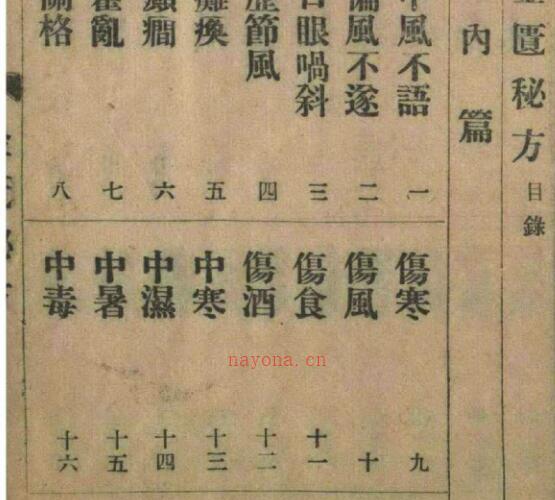 金匱秘方 目錄
內篇
中風不語 一
偏風不遂 二
口眼喎斜 三
歷節風 四
癱瘓 五
癲癇 六
霍亂 七
關格 八
傷寒 九
傷風 十
傷食 十一
傷酒 十二
中寒 十三
中濕 十四
中暑 十五
中毒 十六
nayona.cn